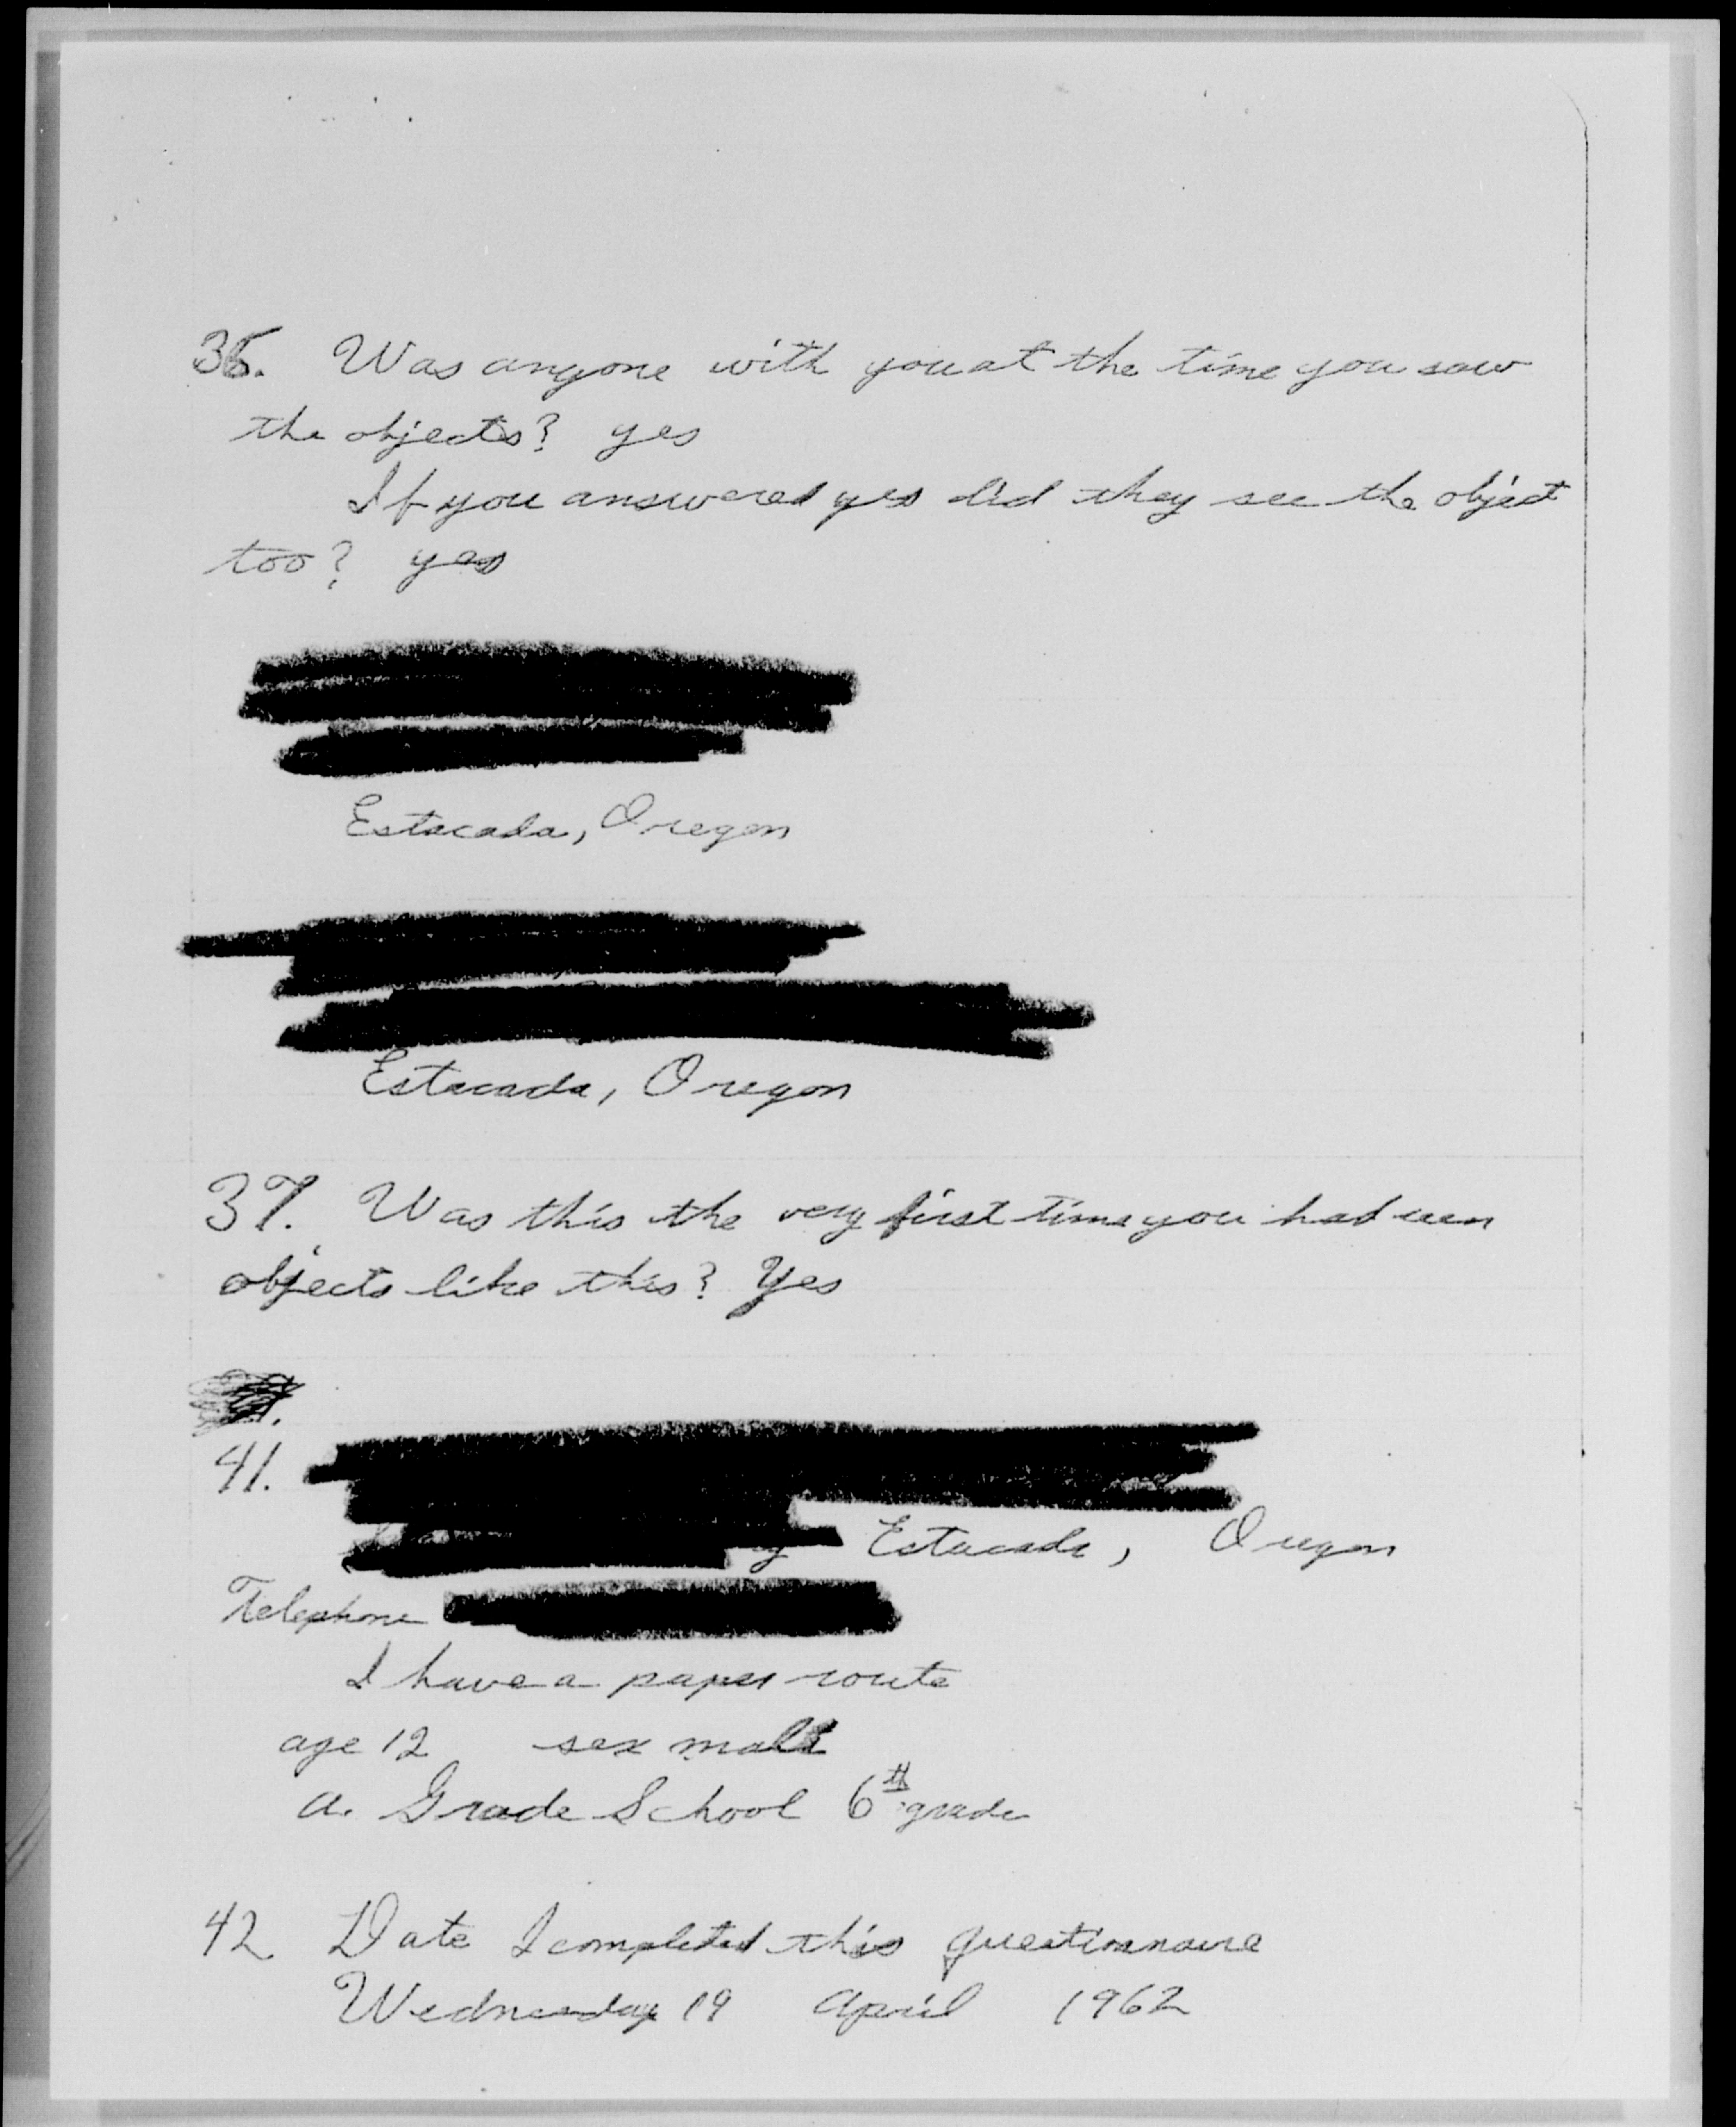 36. Was anyone with you at the time you saw
the objects? yes
If you answered yes did they see the object
too? yes
Estacada, Oregon
Estacada, Oregon
37. Was this the very first time you had seen
objects like this? Yes
41.
Estacada, Oregon
Telephone
I have a paper route
age 12 sex male
a. Grade School 6th grade
42 Date I completed this questionnaire
Wednesday 19 April 1962